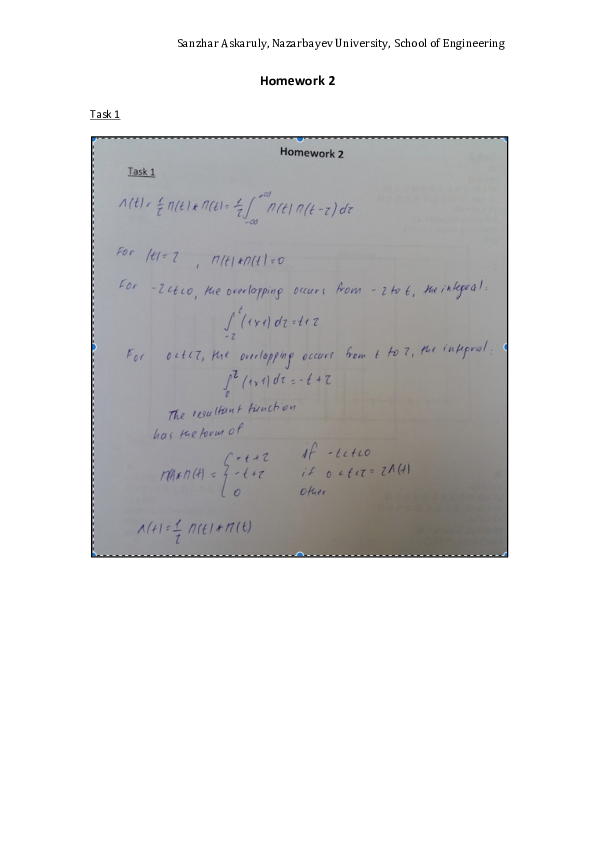 Sanzhar Askaruly, Nazarbayev University, School of Engineering
Homework 2
Task 1
Homework 2
Task 1
Λ(t) = 1/τ Π(t) * Π(t) = 1/τ ∫_{-∞}^{+∞} Π(t) Π(t-τ) dτ
For |t| = τ , Π(t) * Π(t) = 0
For -τ<t<0, the overlapping occurs from -τ to t, the integral:
∫_{-τ}^{t} (1×1) dτ = t+τ
For 0<t<τ, the overlapping occurs from t to τ, the integral:
∫_{t}^{τ} (1×1) dτ = -t+τ
The resultant function
has the form of
-t+τ if -τ<t<0
-t+τ if 0<t<τ = τΛ(t)
0 other
Λ(t) = 1/τ Π(t) * Π(t)